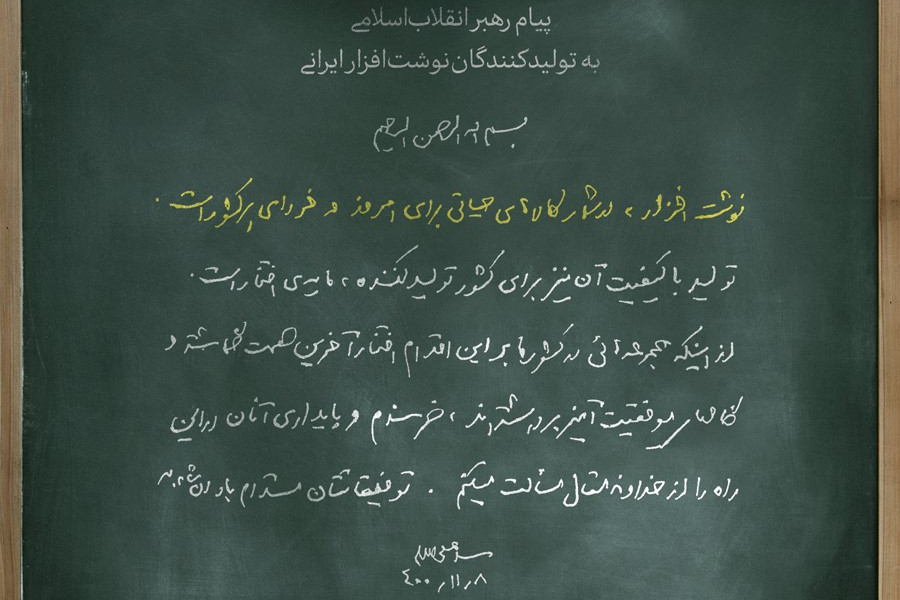 پیام رهبر انقلاب اسلامی
به تولیدکنندگان نوشت‌افزار ایرانی
بسم الله الرحمن الرحیم
نوشت افزار، در شمار کالاهای حیاتی برای امروز و فردای هر کشور است.
تولید با کیفیت آن نیز برای کشور تولیدکننده، مایه‌ی افتخار است.
از اینکه مجموعه‌ئی در کشور ما بر این اقدام افتخارآفرین همت گماشته و
گامهای موفقیت‌آمیز برداشته‌اند، خرسندم و پایداری آنان در این
راه را از خداوند متعال مسألت میکنم. توفیقاتشان مستدام باد ان‌شاءالله
۸ ر ۱۱ ر ۴۰۰